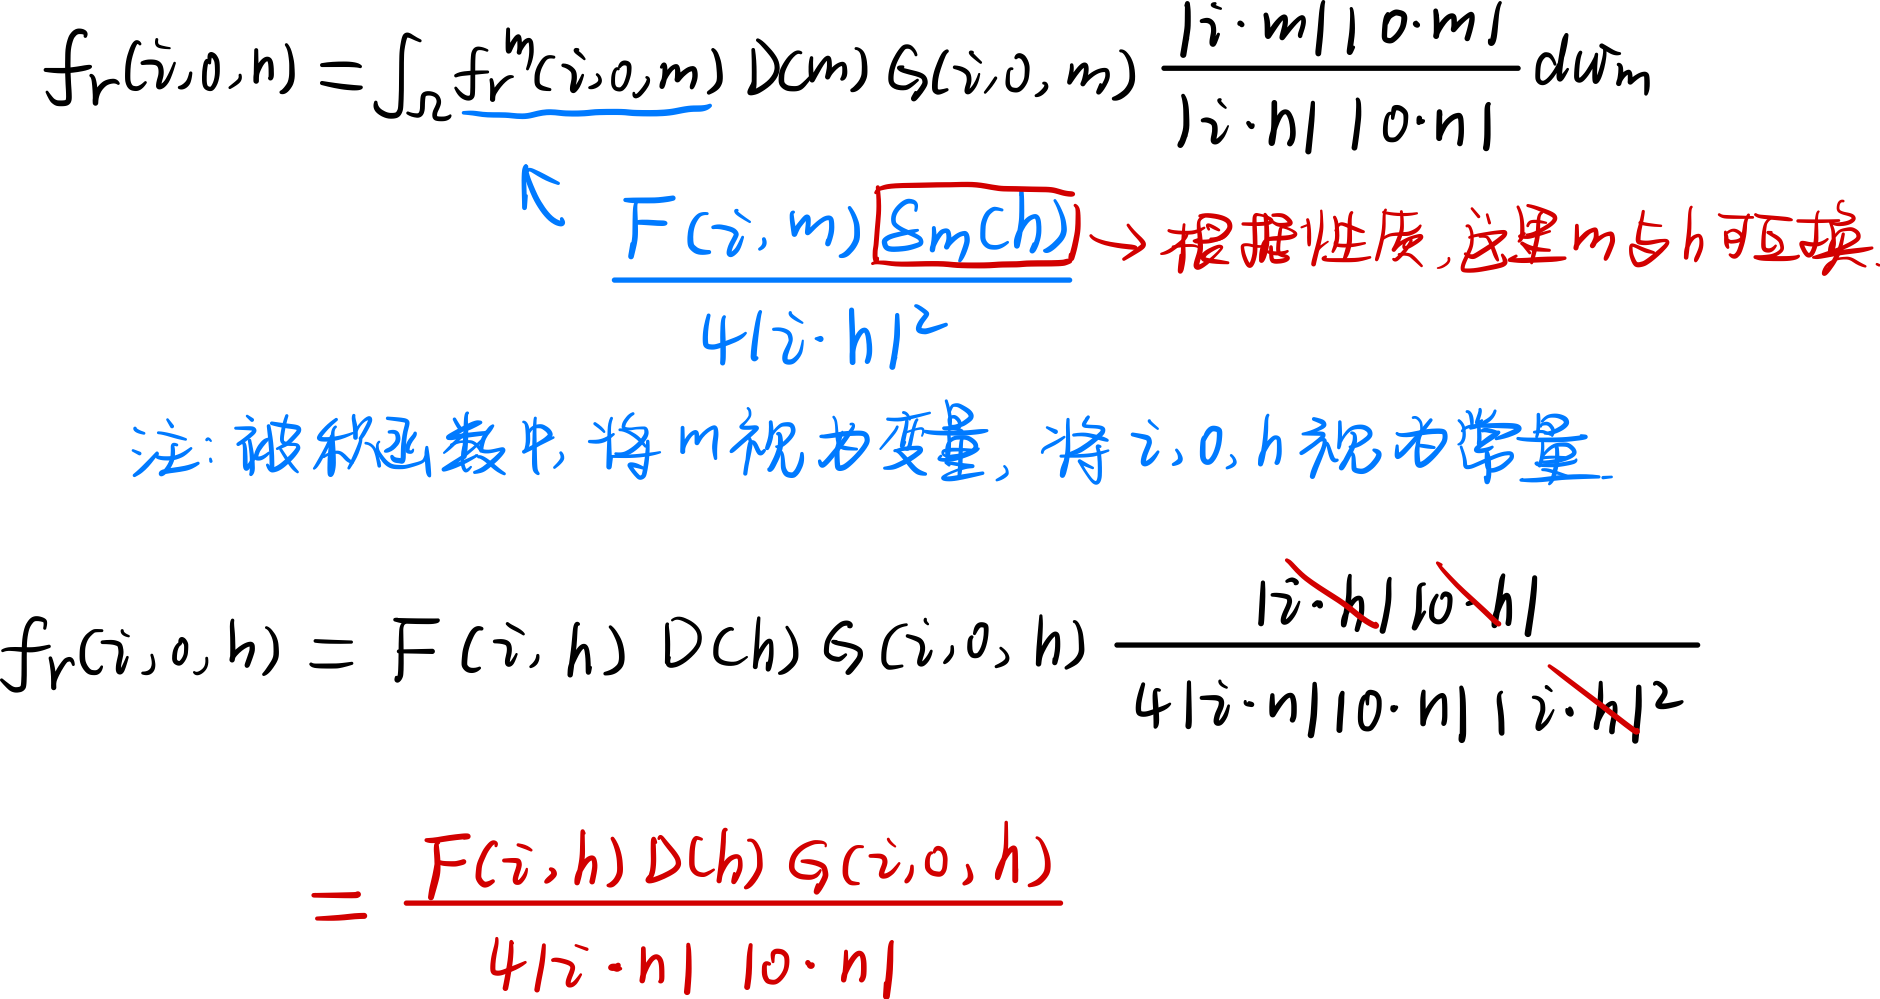 fr(i,o,n) = ∫Ω fr^m(i,o,m) D(m) G(i,o,m) |i·m||o·m| / |i·n||o·n| dωm
F(i,m) δm(h) / 4|i·h|² → 根据性质,这里m与h可互换.
注:被积函数中,将m视为变量,将i,o,h视为常量.
fr(i,o,h) = F(i,h) D(h) G(i,o,h) |i·h||o·h| / 4|i·n||o·n||i·h|²
= F(i,h) D(h) G(i,o,h) / 4|i·n| |o·n|